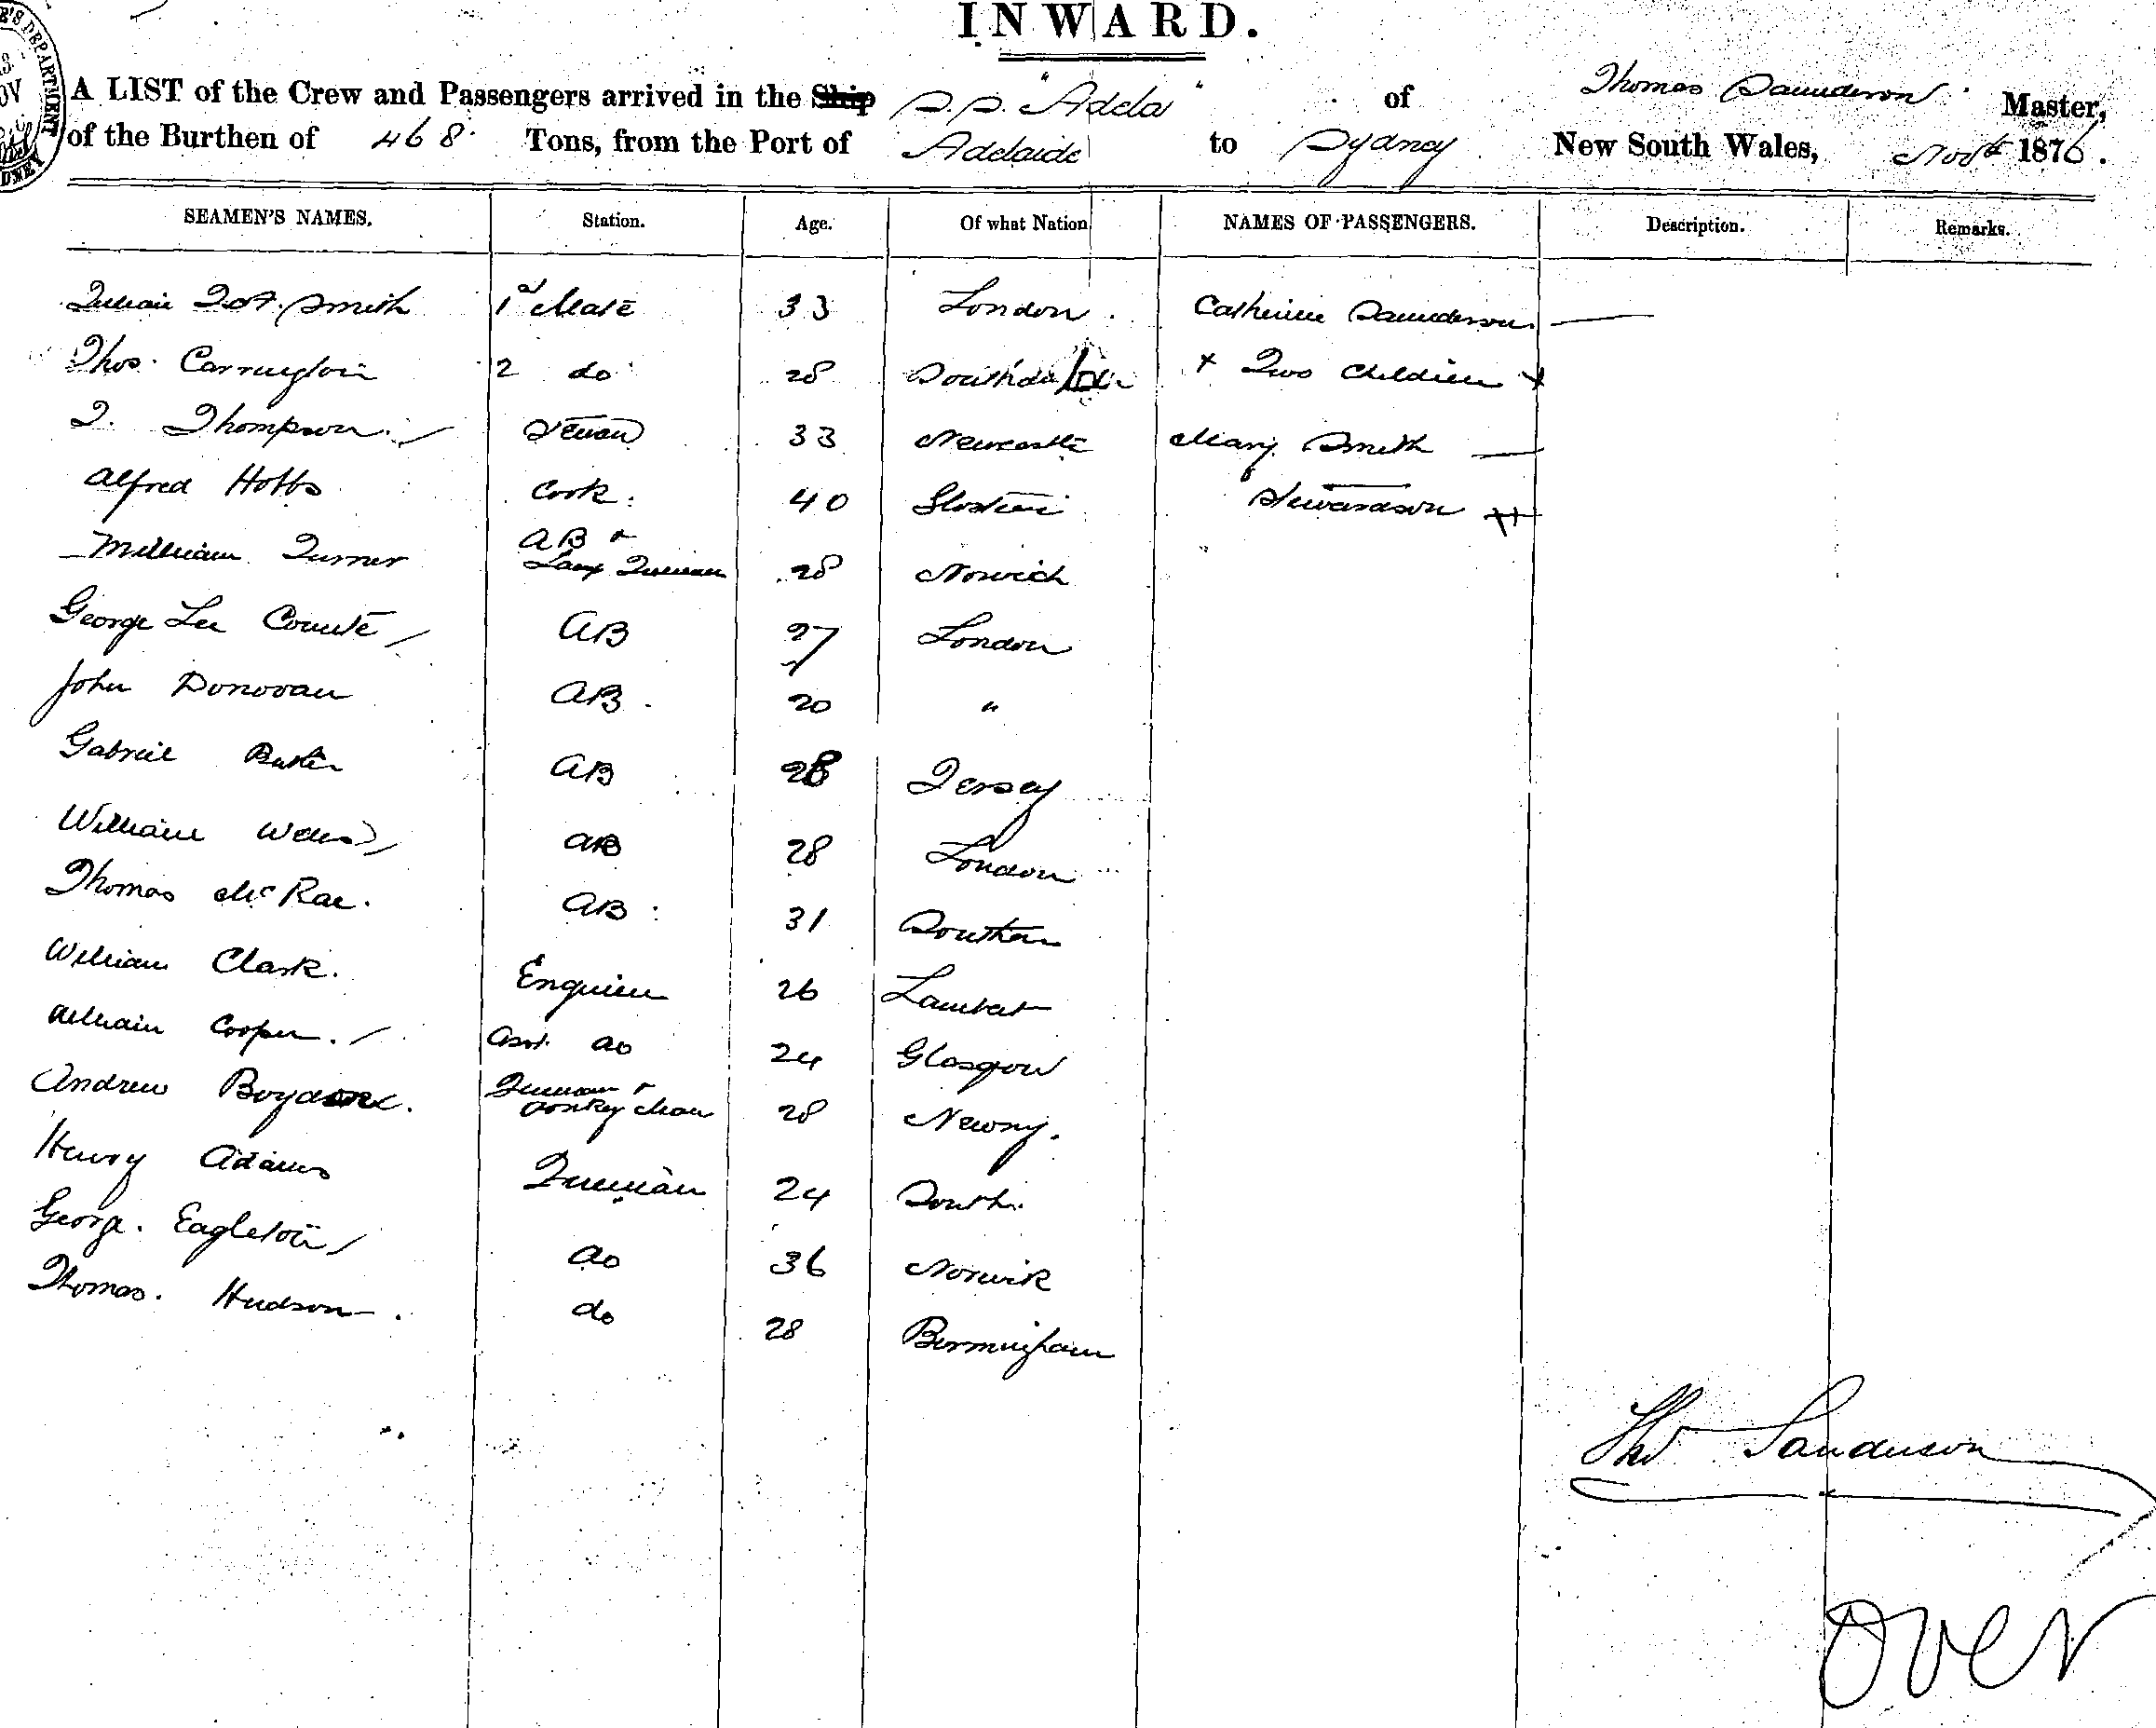 INWARD.
A LIST of the Crew and Passengers arrived in the Ship S.S. "Adela" of Thomas Saunderson Master,
of the Burthen of 468 Tons, from the Port of Adelaide to Sydney New South Wales, 1876.
SEAMEN'S NAMES. Station. Age. Of what Nation NAMES OF PASSENGERS. Description. Remarks.
Smith 1st Mate 33 London Catherine Saunderson
Thos. Carrington 2 do 28 + Two Children
J. Thompson 33 Newcastle Mary Smith
Alfred Hobbs Cook 40 Stewardson
William Turner AB + Lamp Trimmer 28 Norwich
George Le Comte AB 27 London
John Donovan AB 20 "
Gabriel AB 28 Jersey
William AB 28 London
Thomas McRae. AB 31
William Clark. Engineer 26
William Cooper. Asst. do 24 Glasgow
Andrew Fireman + Donkey Man 28 Newry.
Henry Adams Fireman 24 South.
George. Eagleton do 36 Norwik
Thomas. Hudson do 28 Birmingham
Thos Sanderson
over